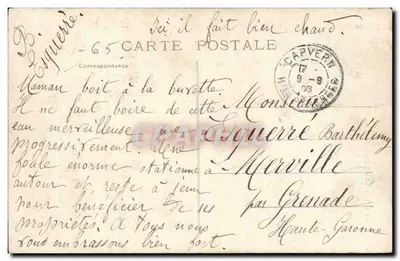 Ici, il fait bien chaud.
B. Esquerré
-65
CARTE POSTALE
Correspondance
CAPVERN
17
9-9
08
HTES PYRENEES
Maman boit à la buvette.
Il ne faut boire de cette
eau merveilleuse que
progressivement. Une
foule énorme stationne
autour et reste à jeun
pour bénéficier de ses
propriétés. A tous nous
vous embrassons bien fort.
Monsieur
Esquerré Barthélemy
à Merville
par Grenade
Haute-Garonne